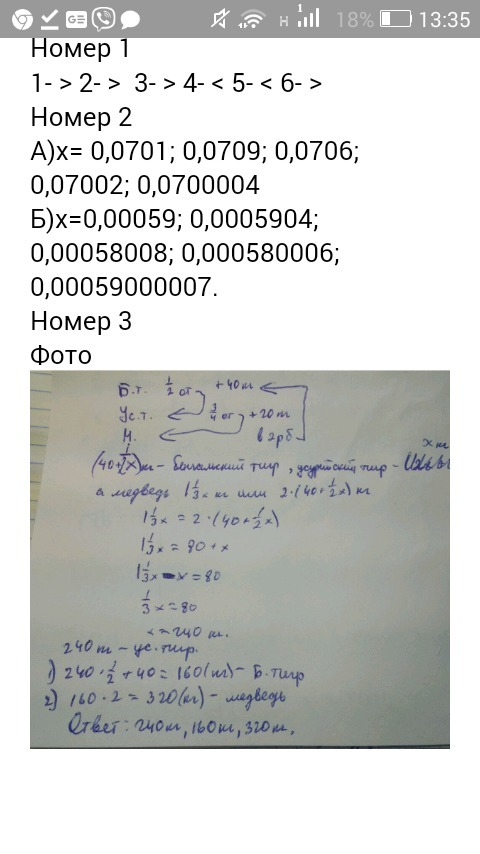 H 1 18% 13:35
Номер 1
1- > 2- > 3- > 4- < 5- < 6- >
Номер 2
А)х= 0,0701; 0,0709; 0,0706;
0,07002; 0,0700004
Б)х=0,00059; 0,0005904;
0,00058008; 0,000580006;
0,00059000007.
Номер 3
Фото
Б.т. 1/2 от +40кг
Ус.т. 3/4 от +20кг
М. в 2рб
х кг
(40+1/2x)кг - бенгальский тигр, уссурийский тигр -
а медведь 1 1/3 х кг или 2·(40+1/2x) кг
1 1/3 x = 2·(40+1/2x)
1 1/3 x = 80+x
1 1/3 x - x = 80
1/3 x = 80
x = 240 кг.
240кг - ус. тигр.
1) 240·1/2 + 40 = 160(кг) - Б.тигр
2) 160·2 = 320(кг) - медведь
Ответ: 240кг, 160кг, 320кг.